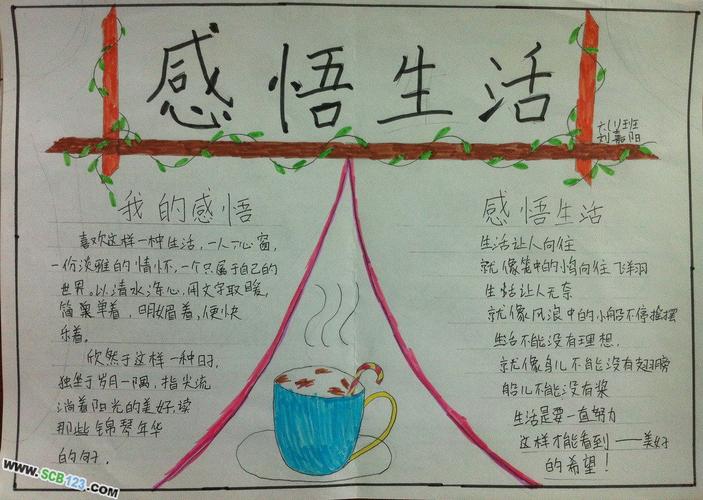 感悟生活
六(1)班
刘嘉阳
我的感悟
喜欢这样一种生活,一人一心窗,
一份淡雅的情怀,一个只属于自己的
世界。以清水涤心,用文字取暖,
简单着,明媚着,便快
乐着。
欣然于这样一种时,
独坐于岁月一隅,指尖流
淌着阳光的美好,读
那些锦琴年华
的句子。
感悟生活
生活让人向往
就像笼中的小鸟向往飞翔
生活让人无奈
就像风浪中的小船不停摇摆
生活不能没有理想,
就像鸟儿不能没有翅膀
船儿不能没有桨
生活是要一直努力
这样才能看到——美好
的希望!
www.SCB123.com